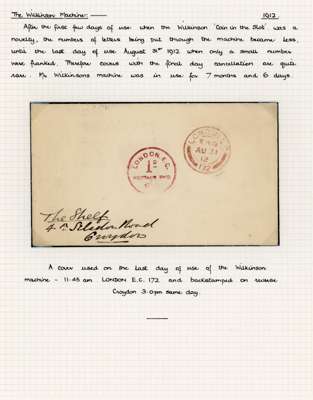 The Wilkinson Machine:
1912
After the first few days of use when the Wilkinson 'Coin in the Slot' was a
novelty, the numbers of letters being put through the machine became less,
until the last day of use August 31st 1912 when only a small number
were franked. Therefore covers with the final day cancellation are quite
rare. Mr Wilkinsons machine was in use for 7 months and 6 days.
LONDON, E.C.
1D
POSTAGE PAID
LONDON
AU 31
12
172
The Shelf
Road
Croydon
A cover used on the last day of use of the Wilkinson
machine - 11.45 am LONDON E.C. 172 and backstamped on reverse
Croydon 3.0pm same day.